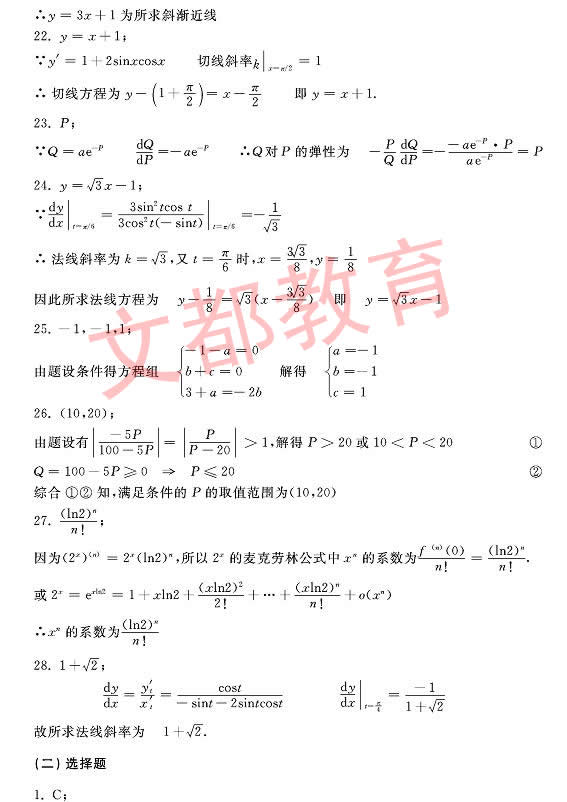 ∴y = 3x + 1 为所求斜渐近线
22. y = x + 1;
∵y′ = 1 + 2sinxcosx 切线斜率k|x=π/2 = 1
∴ 切线方程为 y − (1 + π/2) = x − π/2 即 y = x + 1.
23. P;
∵Q = ae^−P dQ/dP = −ae^−P ∴Q对P 的弹性为 −P/Q dQ/dP = −(−ae^−P · P)/(ae^−P) = P
24. y = √3x − 1;
∵dy/dx|t=π/6 = 3sin²tcos t/3cos²t(− sint)|t=π/6 = −1/√3
∴ 法线斜率为 k = √3,又 t = π/6 时,x = 3√3/8,y = 1/8
因此所求法线方程为 y − 1/8 = √3(x − 3√3/8) 即 y = √3x − 1
25. − 1, − 1,1;
由题设条件得方程组 {− 1 − a = 0 b + c = 0 3 + a = − 2b 解得 {a = − 1 b = − 1 c = 1
26. (10,20);
由题设有|− 5P/(100 − 5P)| = |P/(P − 20)| > 1,解得 P > 20 或 10 < P < 20 ①
Q = 100 − 5P ⩾ 0 ⇒ P ⩽ 20 ②
综合 ①② 知,满足条件的 P 的取值范围为(10,20)
27. (ln2)^n/n!;
因为(2^x)^(n) = 2^x(ln2)^n,所以 2^x 的麦克劳林公式中 x^n 的系数为 f^(n)(0)/n! = (ln2)^n/n!.
或 2^x = e^xln2 = 1 + xln2 + (xln2)²/2! + ⋯ + (xln2)^n/n! + o(x^n)
∴x^n 的系数为(ln2)^n/n!
28. 1 + √2;
dy/dx = y′t/x′t = cost/(− sint − 2sintcost) dy/dx|t=π/4 = − 1/(1 + √2)
故所求法线斜率为 1 + √2.
(二) 选择题
1. C;
文都教育